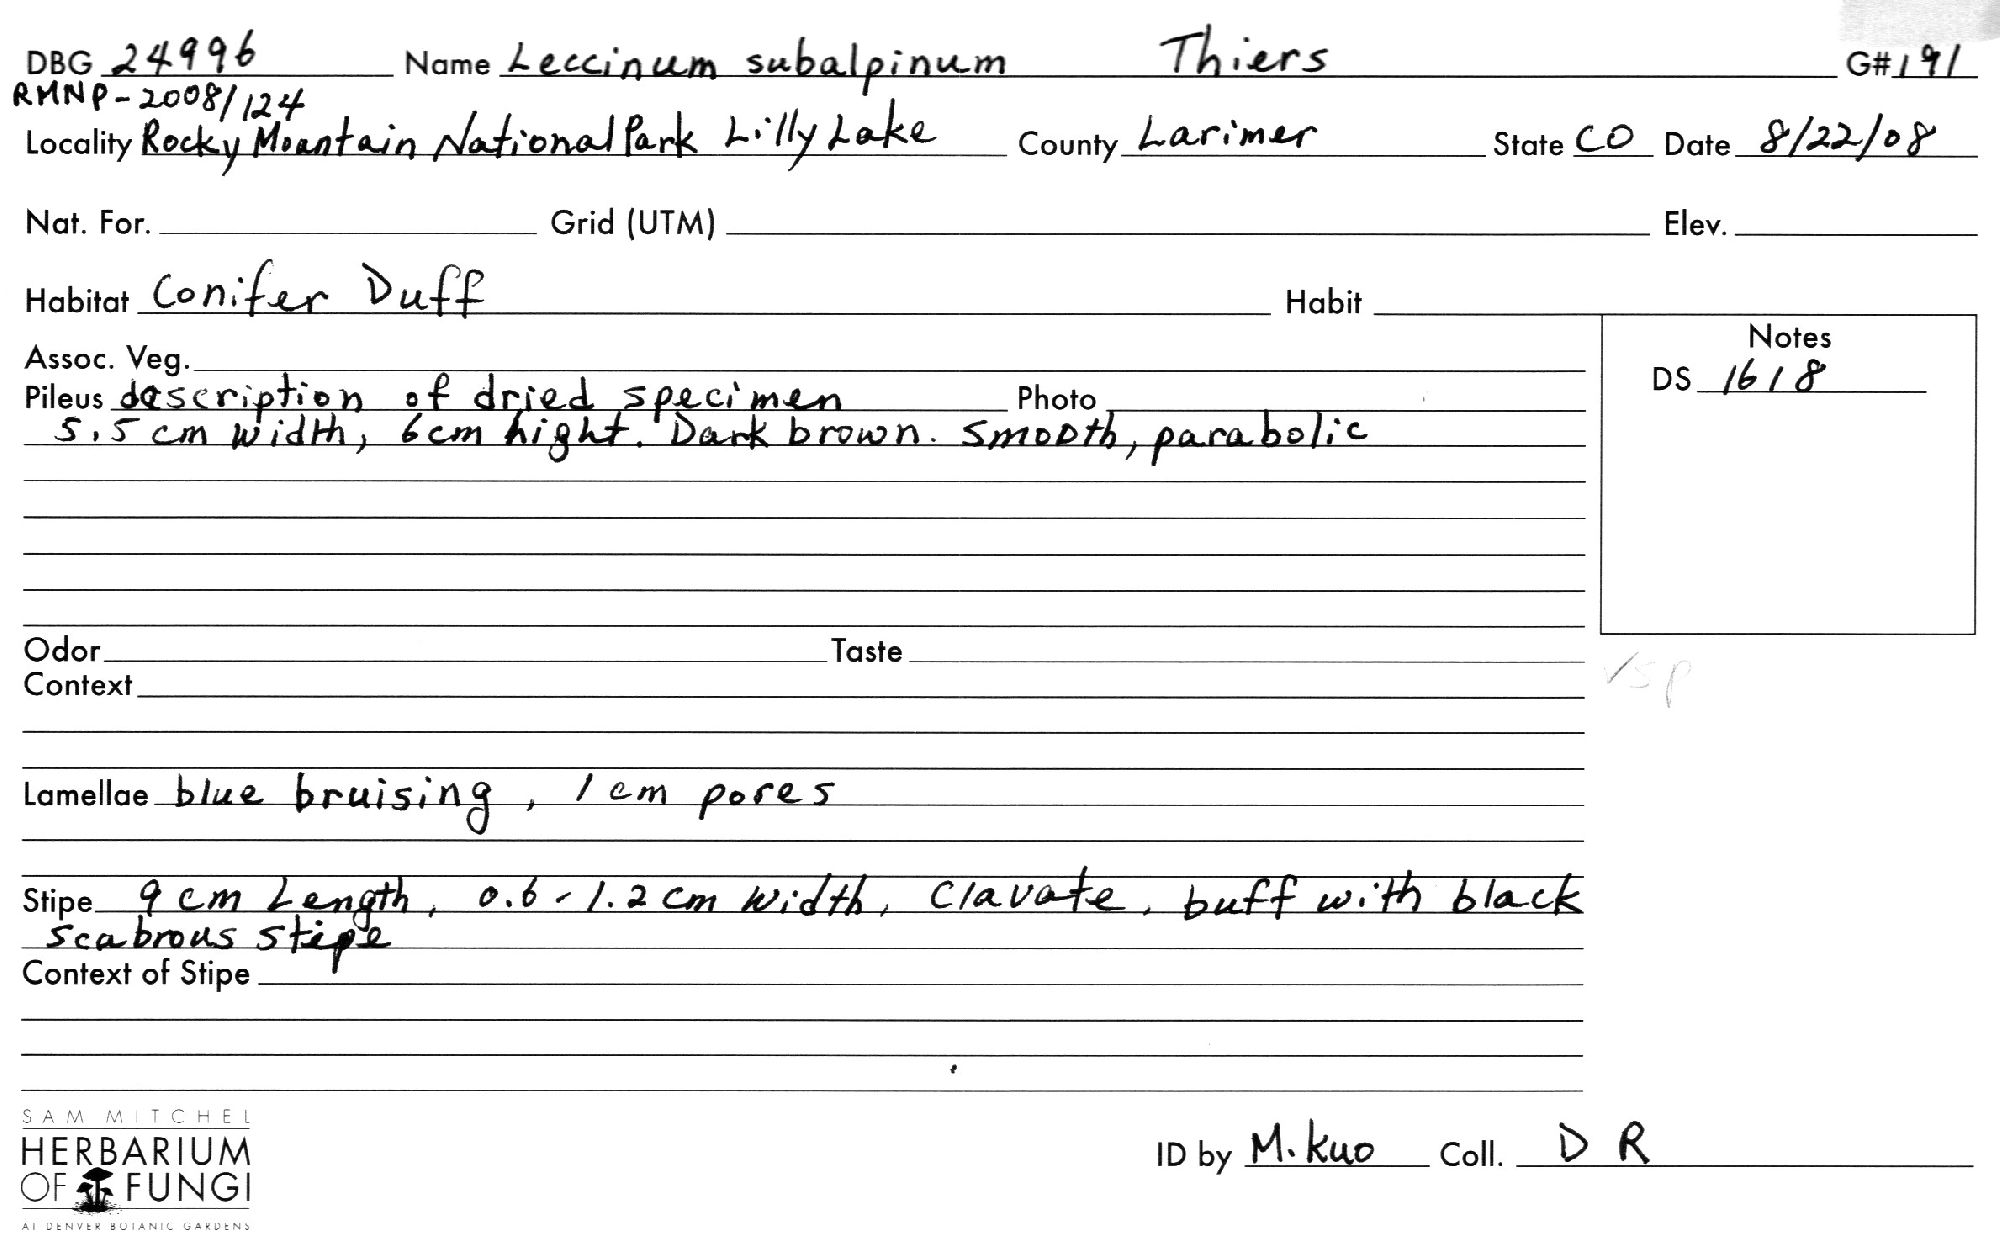 DBG 24996 Name Leccinum subalpinum Thiers G# 191
RMNP-2008/124
Locality Rocky Mountain National Park Lilly Lake County Larimer State CO Date 8/22/08
Nat. For. Grid (UTM) Elev.
Habitat Conifer Duff Habit
Notes
Assoc. Veg.
DS 1618
Pileus description of dried specimen Photo
5.5 cm width, 6cm hight. Dark brown. smooth, parabolic
Odor Taste
vsp
Context
Lamellae blue bruising, 1 cm pores
Stipe 9 cm Length, 0.6-1.2 cm width, Clavate, buff with black
scabrous stipe
Context of Stipe
SAM MITCHEL
HERBARIUM
OF FUNGI
AT DENVER BOTANIC GARDENS
ID by M. Kuo Coll. D R